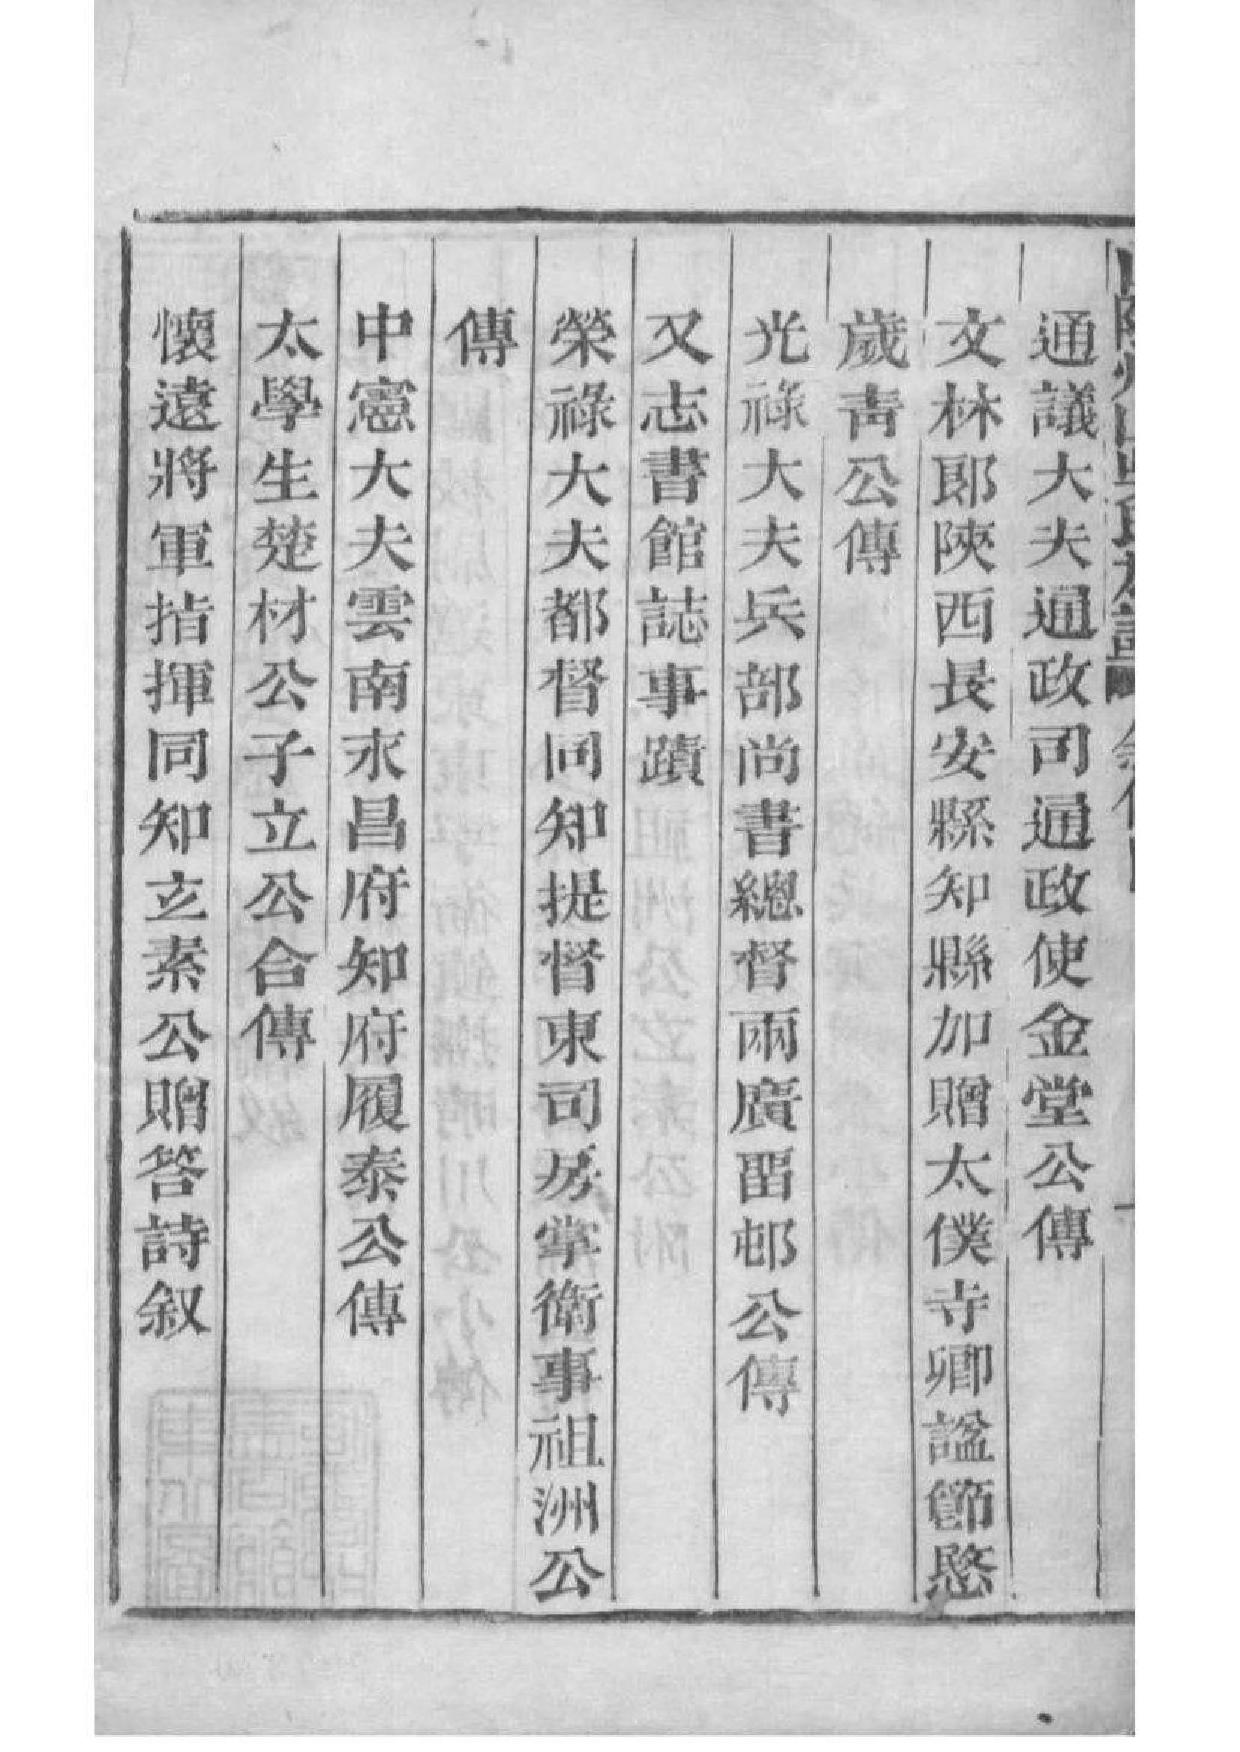 山陰州山吳氏族譜
通議大夫通政司通政使金堂公傳
文林郎陝西長安縣知縣加贈太僕寺卿諡節愍
歲靑公傳
光祿大夫兵部尚書總督兩廣畱邨公傳
又志書館誌事蹟
榮祿大夫都督同知提督東司房掌衛事祖洲公
傳
中憲大夫雲南永昌府知府履泰公傳
太學生楚材公子立公合傳
懷遠將軍指揮同知立素公贈答詩叙